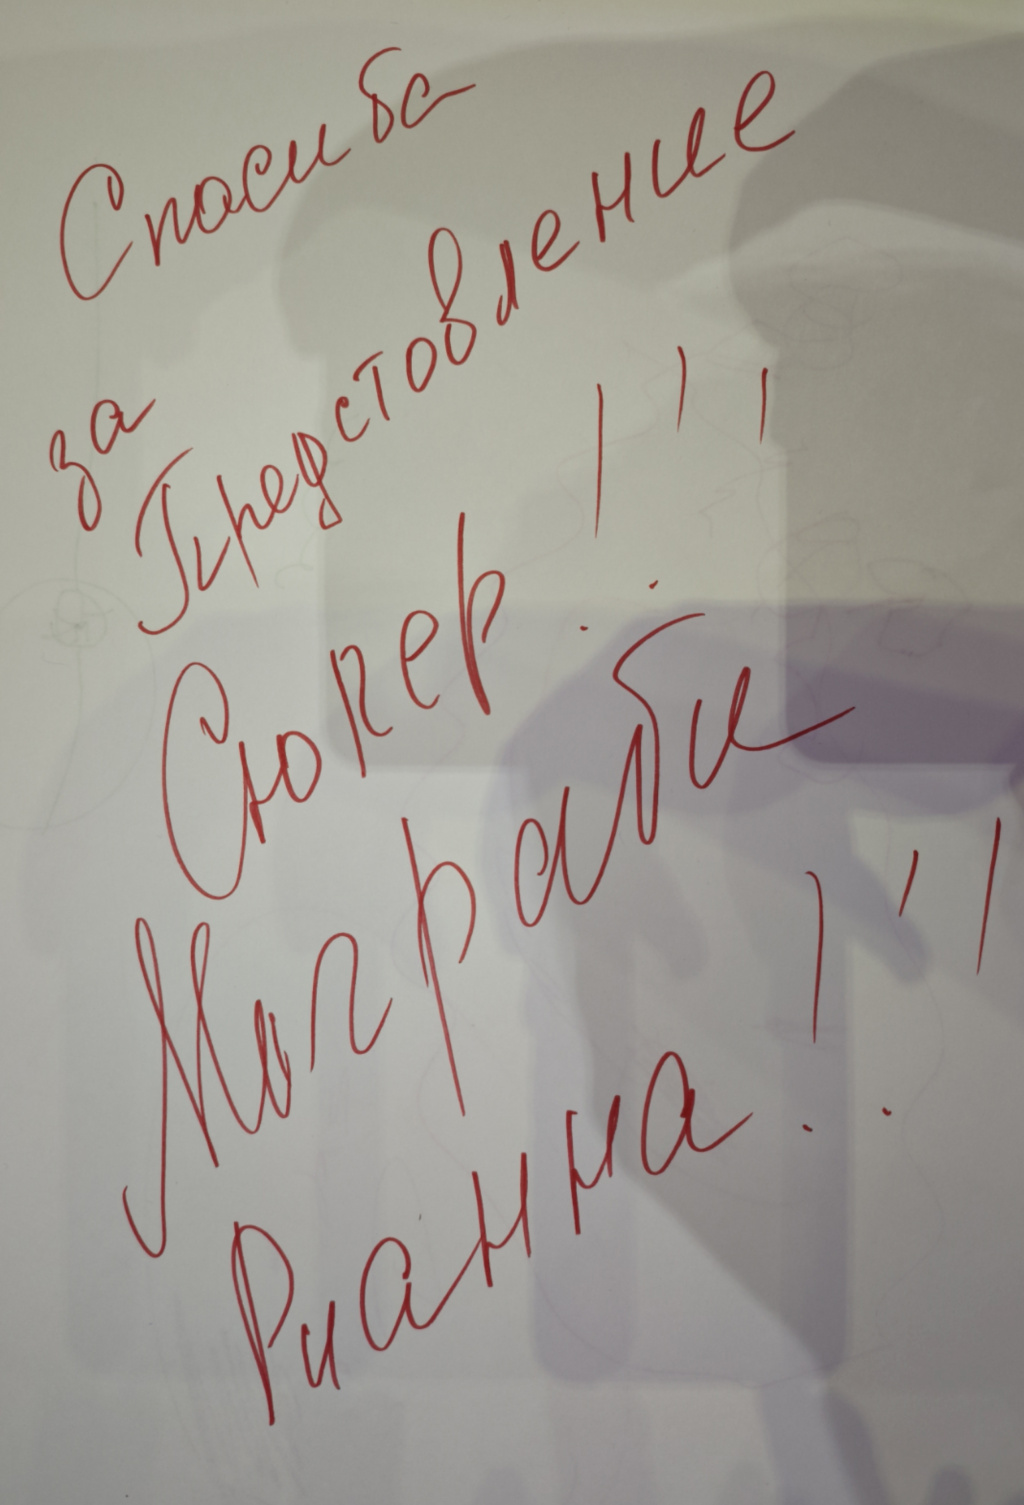 Спосиба
за
Предстовление
Сюкер!!!
Маграбе
Рианна!!!